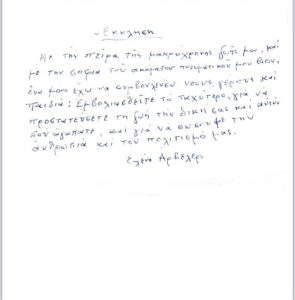 - Έκκληση -
Με την πείρα της μακρόχρονης ζωής μου, και
με την σοφία του ακάματου πνευματικού μου βίου,
ένα μόνο έχω να συμβουλέψω νέους, γέρους και
παιδιά: Εμβολιασθείτε το ταχύτερο, για να
προστατεύσετε τη ζωή την δική σας και αυτών
που αγαπάτε, και για να σώσουμε την
ανθρωπιά και τον πολιτισμό μας.
Ελένη Αρβελέρ